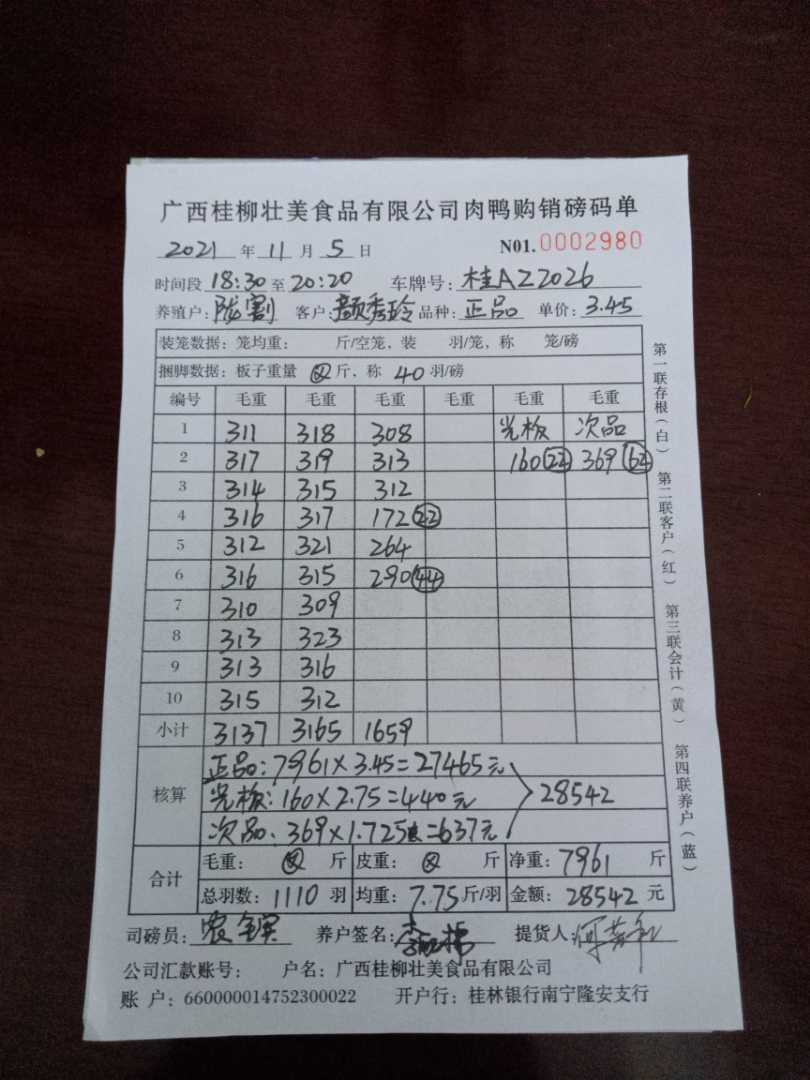 广西桂柳壮美食品有限公司肉鸭购销磅码单
2021 年 11 月 5 日 N01. 0002980
时间段 18:30 至 20:20 车牌号: 桂AZ2026
养殖户: 陇割 客户: 颜秀玲 品种: 正品 单价: 3.45
装笼数据: 笼均重: 斤/空笼, 装 羽/笼, 称 笼/磅
捆脚数据: 板子重量 斤, 称 40 羽/磅
编号 毛重 毛重 毛重 毛重 毛重 毛重
1 311 318 308 光板 次品
2 317 319 313 160 22 369 62
3 314 315 312
4 316 317 172 22
5 312 321 264
6 316 315 290 44
7 310 309
8 313 323
9 313 316
10 315 312
小计 3137 3165 1659
核算
正品: 7961×3.45=27465元
光板: 160×2.75=440元
次品: 369×1.725=637元
28542
合计
毛重: 斤 皮重: 斤 净重: 7961 斤
总羽数: 1110 羽 均重: 7.75 斤/羽 金额: 28542 元
司磅员: 养户签名: 提货人:
公司汇款账号: 户名: 广西桂柳壮美食品有限公司
账 户: 660000014752300022 开户行: 桂林银行南宁隆安支行
第一联存根(白)
第二联客户(红)
第三联会计(黄)
第四联养户(蓝)